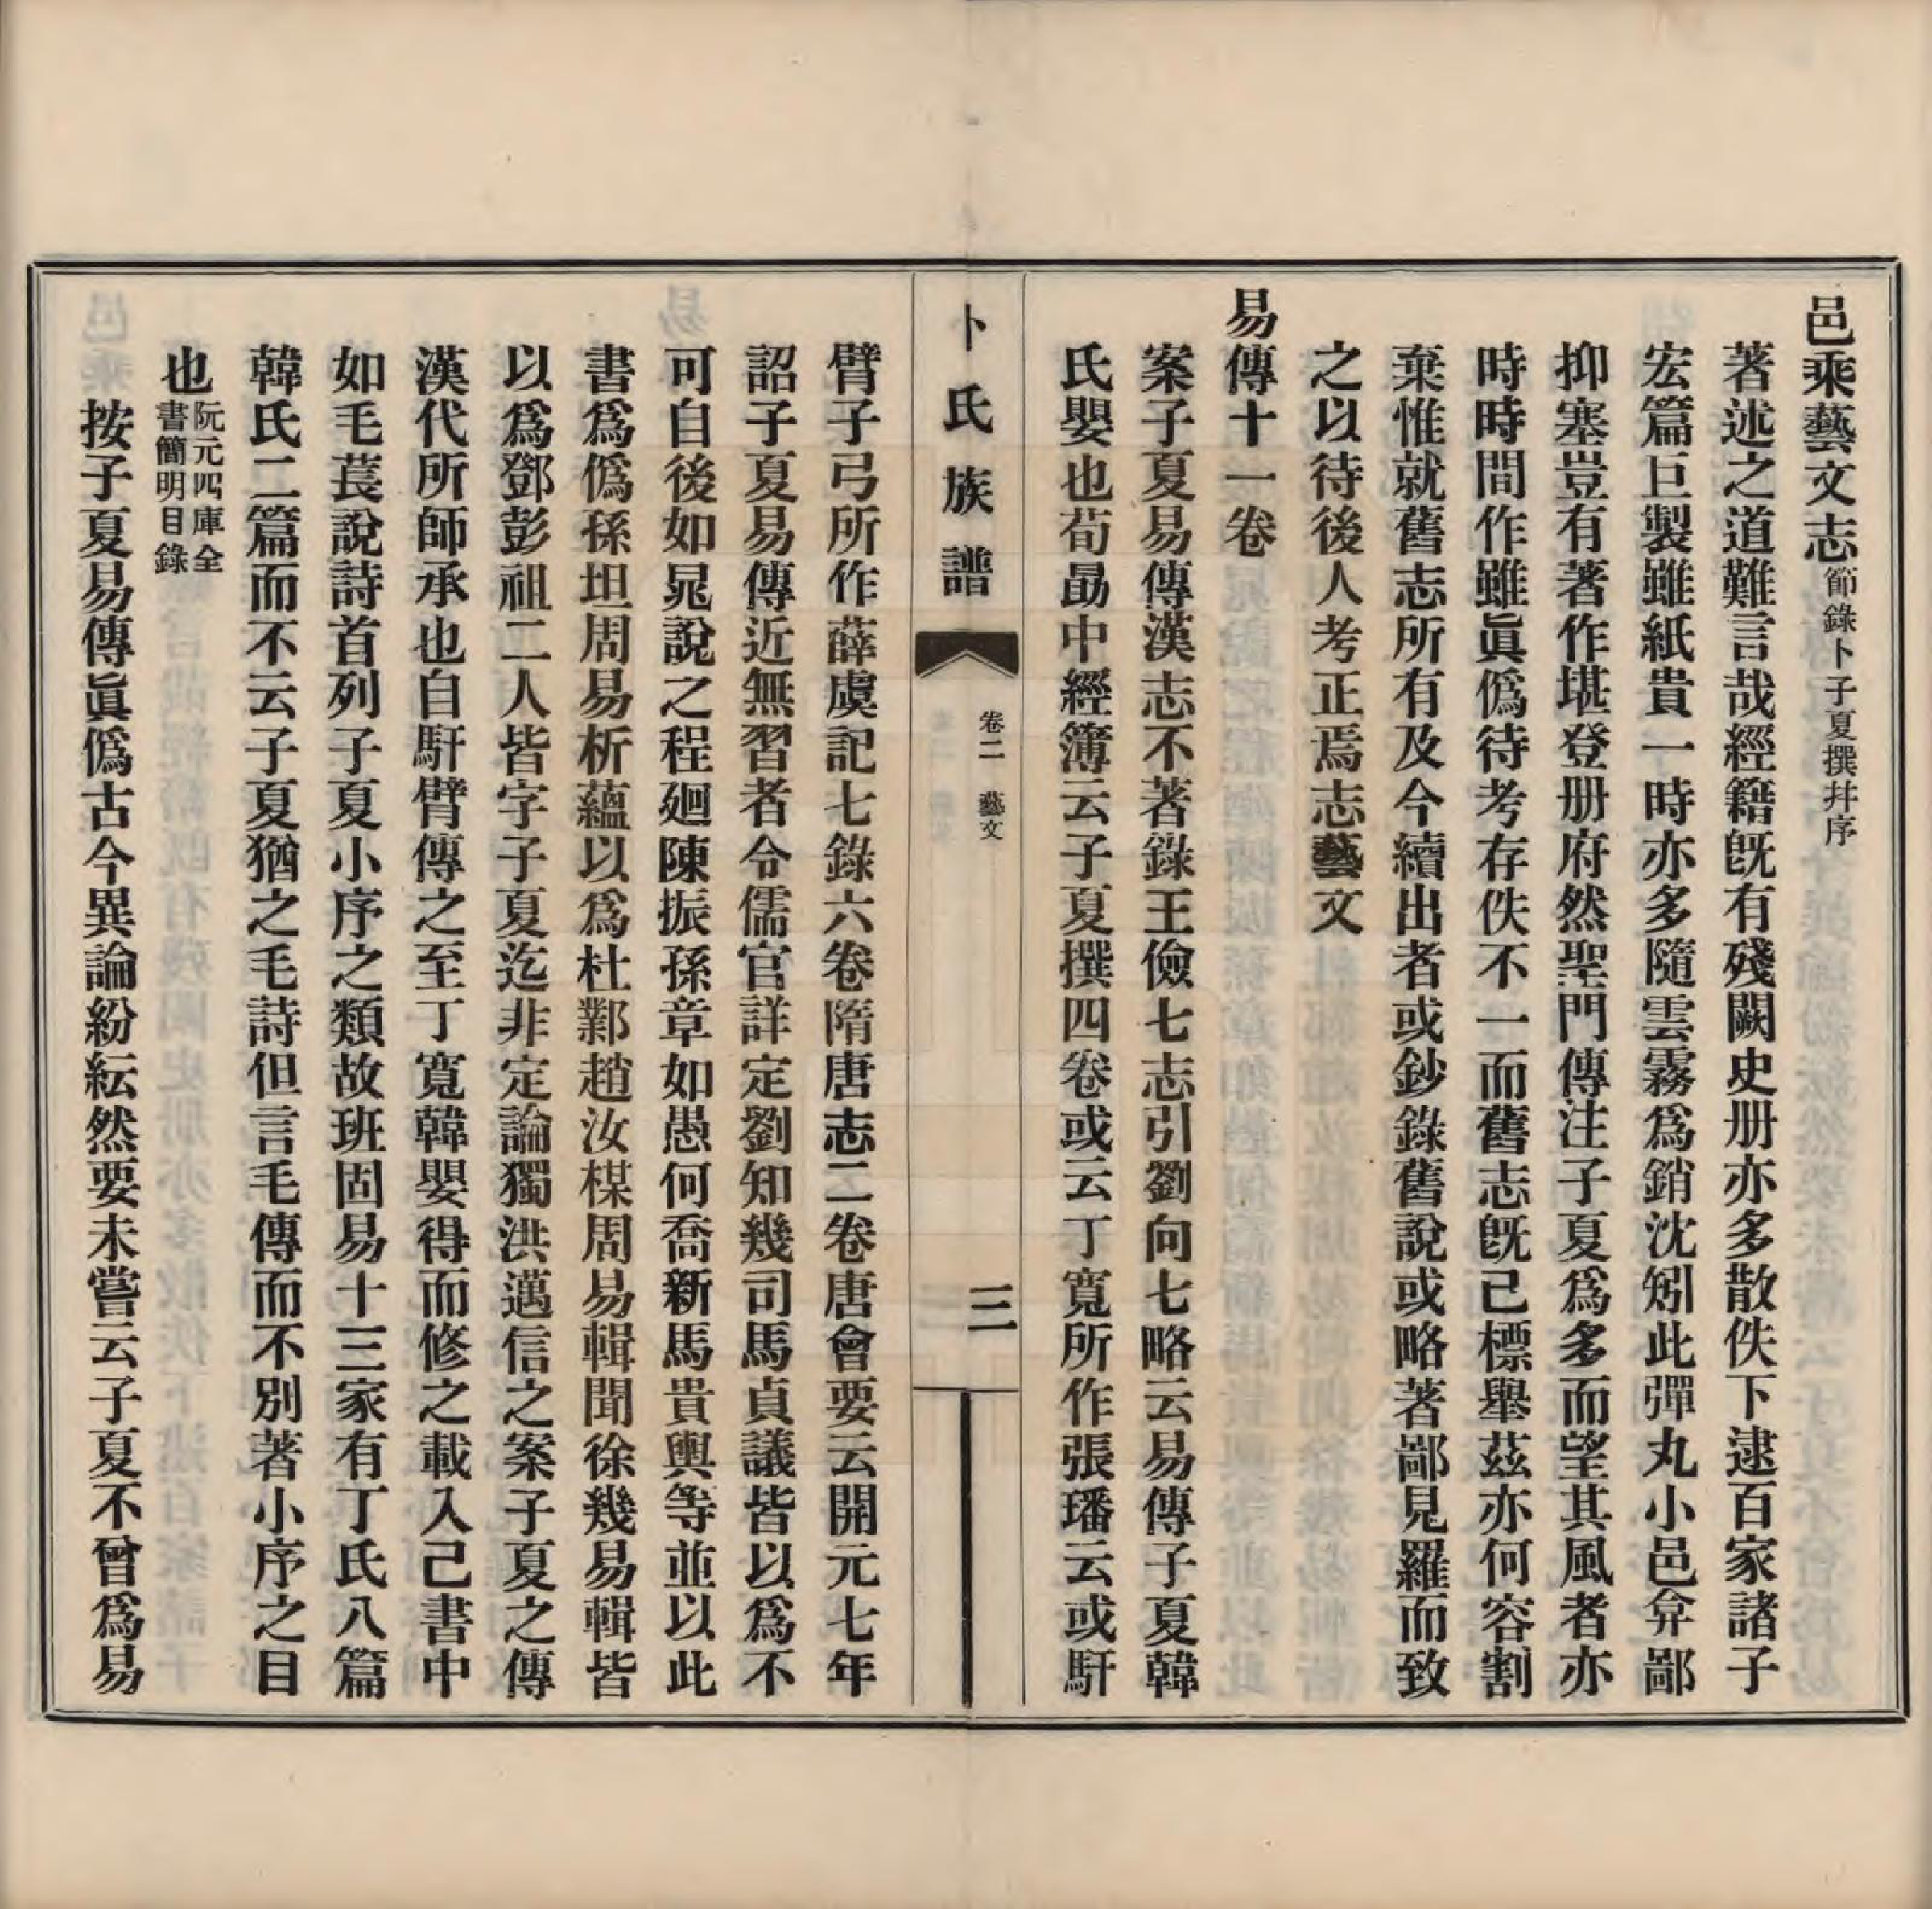 邑乘藝文志節錄卜子夏撰幷序
著述之道難言哉經籍旣有殘闕史册亦多散佚下逮百家諸子
宏篇巨製雖紙貴一時亦多隨雲霧爲銷沈矧此彈丸小邑弇鄙
抑塞豈有著作堪登册府然聖門傳注子夏爲多而望其風者亦
時時間作雖眞僞待考存佚不一而舊志旣已標舉茲亦何容割
棄惟就舊志所有及今續出者或鈔錄舊說或略著鄙見羅而致
之以待後人考正焉志藝文
易傳十一卷
案子夏易傳漢志不著錄王儉七志引劉向七略云易傳子夏韓
氏嬰也荀勗中經簿云子夏撰四卷或云丁寬所作張璠云或馯
卜氏族譜
卷二 藝文
三
臂子弓所作薛虞記七錄六卷隋唐志二卷唐會要云開元七年
詔子夏易傳近無習者令儒官詳定劉知幾司馬貞議皆以爲不
可自後如晁說之程廻陳振孫章如愚何喬新馬貴輿等並以此
書爲僞孫坦周易析蘊以爲杜鄴趙汝楳周易輯聞徐幾易輯皆
以爲鄧彭祖二人皆字子夏迄非定論獨洪邁信之案子夏之傳
漢代所師承也自馯臂傳之至丁寬韓嬰得而修之載入己書中
如毛萇說詩首列子夏小序之類故班固易十三家有丁氏八篇
韓氏二篇而不云子夏猶之毛詩但言毛傳而不別著小序之目
也阮元四庫全書簡明目錄
按子夏易傳眞僞古今異論紛紜然要未嘗云子夏不曾爲易